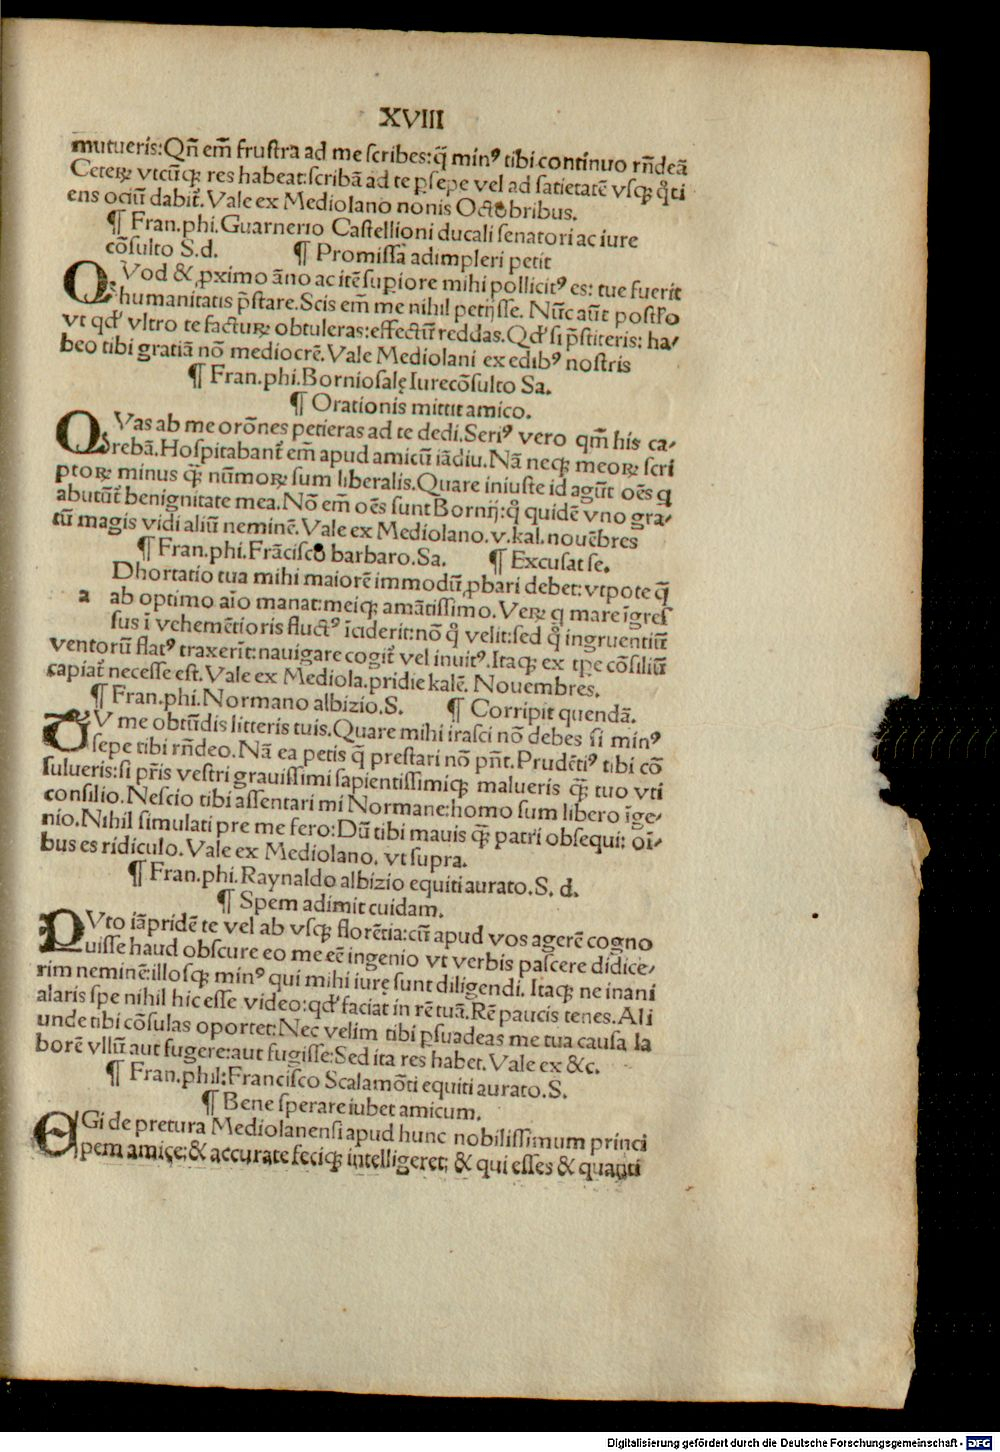 XVIII
mutueris:Qñ em̃ frustra ad me scribes:q̃ minꝰ tibi continuo rñdeã
Ceterꝝ vtcũqꝫ res habeat:scribã ad te p̱sepe vel ad satietatẽ vsqꝫ q̃ti
ens ociũ dabit̃.Vale ex Mediolano nonis Octobribus.
¶ Fran.phi.Guarnerio Castellioni ducali senatori ac iure
cõsulto S.d. ¶ Promissa adimpleri petit
QVod & ꝓximo ãno ac itẽ superiore mihi pollicitꝰ es: tue fuerit
humanitatis p̃stare.Scis em̃ me nihil petijsse. Nũc aũt postr̃o
vt qd' vltro te facturꝝ obtuleras:effectũ reddas.Qd' si p̃stiteris: ha⸗
beo tibi gratiã nõ mediocrẽ.Vale Mediolani ex edibꝰ nostris
¶ Fran.phi.Borniosalę Iurecõsulto Sa.
¶ Orationis mittit amico.
QVas ab me orõnes petieras ad te dedi.Seriꝰ vero qm̃ his ca⸗
rebã.Hospitabant̃ em̃ apud amicũ iãdiu.Nã neqꝫ meorꝝ scri
ptorꝝ minus q̃ꝫ nũmorꝝ sum liberalis.Quare iniuste id agũt oẽs q
abutũt̃ benignitate mea.Nõ em̃ oẽs sunt Bornij:q̃ quidẽ vno gra⸗
tũ magis vidi aliũ neminẽ.Vale ex Mediolano.v.kal.nouẽbres
¶ Fran.phi.Frãcisco barbaro.Sa. ¶ Excusat se.
a Dhortatio tua mihi maiorẽ immodũ ꝓbari debet:vtpote q̃
ab optimo aĩo manat:meiqꝫ amãtissimo.Verꝝ q mare ĩgres
sus ĩ vehemẽtioris fluctꝰ ĩciderit:nõ q̃ velit:sed q̃ ingruentiũ
ventorũ flatꝰ traxerit:nauigare cogit̃ vel inuitꝰ.Itaqꝫ ex tp̃e cõsiliũ
capiat̃ necesse est.Vale ex Mediola.pridie kalẽ. Nouembres.
¶ Fran.phi.Normano albizio.S. ¶ Corripit quendã.
TV me obtũdis litteris tuis.Quare mihi irasci nõ debes si minꝰ
sepe tibi rñdeo.Nã ea petis q̃ prestari nõ pñt.Prudẽtiꝰ tibi cõ
sulueris:si pr̃is vestri grauissimi sapientissimiqꝫ malueris q̃ꝫ tuo vti
consilio.Nescio tibi assentari mi Normane:homo sum libero ĩge⸗
nio.Nihil simulati pre me fero:Dũ tibi mauis q̃ꝫ patri obsequi: oĩ⸗
bus es ridiculo.Vale ex Mediolano. vt supra.
¶ Fran.phi.Raynaldo albizio equiti aurato.S. d.
¶ Spem adimit cuidam.
PVto iãpridẽ te vel ab vsqꝫ florẽtia:cũ apud vos agerẽ cogno
uisse haud obscure eo me eẽ ingenio vt verbis pascere didice⸗
rim neminẽ:illosqꝫ minꝰ qui mihi iurę sunt diligendi. Itaqꝫ ne inani
alaris spe nihil hic esse video:qd' faciat in rẽ tuã.Rẽ paucis tenes.Ali
unde tibi cõsulas oportet:Nec velim tibi p̱suadeas me tua causa la
borẽ vllũ aut fugere:aut fugisse:Sed ita res habet.Vale ex &c.
¶ Fran.phil:Francisco Scalamõti equiti aurato.S.
¶ Bene sperare iubet amicum.
EGi de pretura Mediolanensi apud hunc nobilissimum princi
pem amice:& accurate feciqꝫ intelligeret: & qui esses & quanti
Digitalisierung gefördert durch die Deutsche Forschungsgemeinschaft - DFG